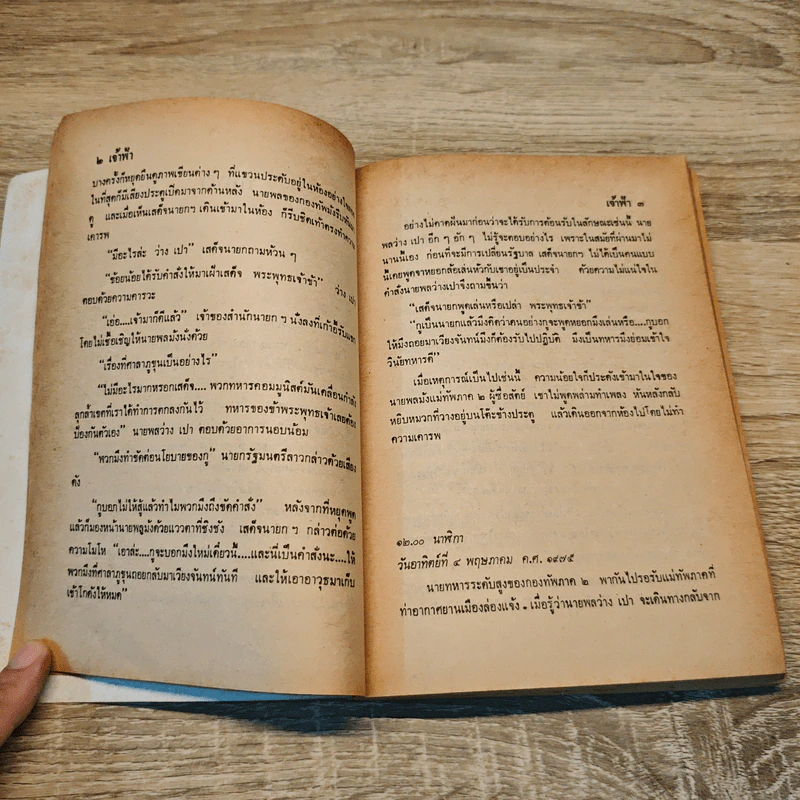 ๒ เจ้าฟ้า
บางครั้งก็หยุดยืนดูภาพเขียนต่าง ๆ ที่แขวนประดับอยู่ในห้องอย่าง
ในที่สุดก็มีเสียงประตูเปิดมาจากด้านหลัง นายพลของกองทัพม้งรีบหันมา
ดู และเมื่อเห็นเสด็จนายกฯ เดินเข้ามาในห้อง ก็รีบชิดเท้าตรงทำความ
เคารพ
“มีอะไรล่ะ ว่าง เปา” เสด็จนายกถามห้วน ๆ
“ข้อยน้อยได้รับคำสั่งให้มาเฝ้าเสด็จ พระพุทธเจ้าข้า” ว่าง เปา
ตอบด้วยความคารวะ
“เอ่อ....เจ้ามาก็ดีแล้ว” เจ้าของสำนักนายกฯ นั่งลงที่เก้าอี้รับแขก
โดยไม่เชื้อเชิญให้นายพลม้งนั่งด้วย
“เรื่องที่ศาลาภูขุนเป็นอย่างไร”
“ไม่มีอะไรมากหรอกเสด็จ.... พวกทหารคอมมูนิสต์มันเคลื่อนกำลัง
ลุกล้ำเขตที่เราได้ทำการตกลงกันไว้ ทหารของข้าพระพุทธเจ้าเลยต้อง
ป้องกันตัวเอง” นายพลว่าง เปา ตอบด้วยอาการนอบน้อม
“พวกมึงทำขัดต่อนโยบายของกู” นายกรัฐมนตรีลาวกล่าวด้วยเสียง
ดัง
“กูบอกไม่ให้สู้แล้วทำไมพวกมึงถึงขัดคำสั่ง” หลังจากที่หยุดพูด
แล้วก็มองหน้านายพลม้งด้วยแววตาที่ชิงชัง เสด็จนายกฯ กล่าวต่อด้วย
ความโมโห “เอาล่ะ....กูจะบอกมึงใหม่เดี๋ยวนี้....และนี่เป็นคำสั่งนะ....ให้
พวกมึงที่ศาลาภูขุนถอยกลับมาเวียงจันทน์ทันที และให้เอาอาวุธมาเก็บ
เข้าโกดังให้หมด”
เจ้าฟ้า ๓
อย่างไม่คาดฝันมาก่อนว่าจะได้รับการต้อนรับในลักษณะเช่นนี้ นาย
พลว่าง เปา อึก ๆ อัก ๆ ไม่รู้จะตอบอย่างไร เพราะในสมัยที่ผ่านมาไม่
นานนี้เอง ก่อนที่จะมีการเปลี่ยนรัฐบาล เสด็จนายกฯ ไม่ได้เป็นคนแบบ
นี้เคยพูดจาหยอกล้อเล่นหัวกับเขาอยู่เป็นประจำ ด้วยความไม่แน่ใจใน
คำสั่งนายพลว่างเปาจึงถามขึ้นว่า
“เสด็จนายกพูดเล่นหรือเปล่า พระพุทธเจ้าข้า”
“กูเป็นนายกแล้วมึงคิดว่าคนอย่างกูจะพูดหยอกมึงเล่นหรือ....กูบอก
ให้มึงถอยมาเวียงจันทน์มึงก็ต้องรับไปปฏิบัติ มึงเป็นทหารมึงย่อมเข้าใจ
วินัยทหารดี”
เมื่อเหตุการณ์เป็นไปเช่นนี้ ความน้อยใจก็ประดังเข้ามาในใจของ
นายพลม้งแม่ทัพภาค ๒ ผู้ซื่อสัตย์ เขาไม่พูดพล่ามทำเพลง หันหลังกลับ
หยิบหมวกที่วางอยู่บนโต๊ะข้างประตู แล้วเดินออกจากห้องไปโดยไม่ทำ
ความเคารพ
๑๒.๐๐ นาฬิกา
วันอาทิตย์ที่ ๔ พฤษภาคม ค.ศ. ๑๙๗๕
นายทหารระดับสูงของกองทัพภาค ๒ พากันไปรอรับแม่ทัพภาคที่
ท่าอากาศยานเมืองล่องแจ้ง . เมื่อรู้ว่านายพลว่าง เปา จะเดินทางกลับจาก